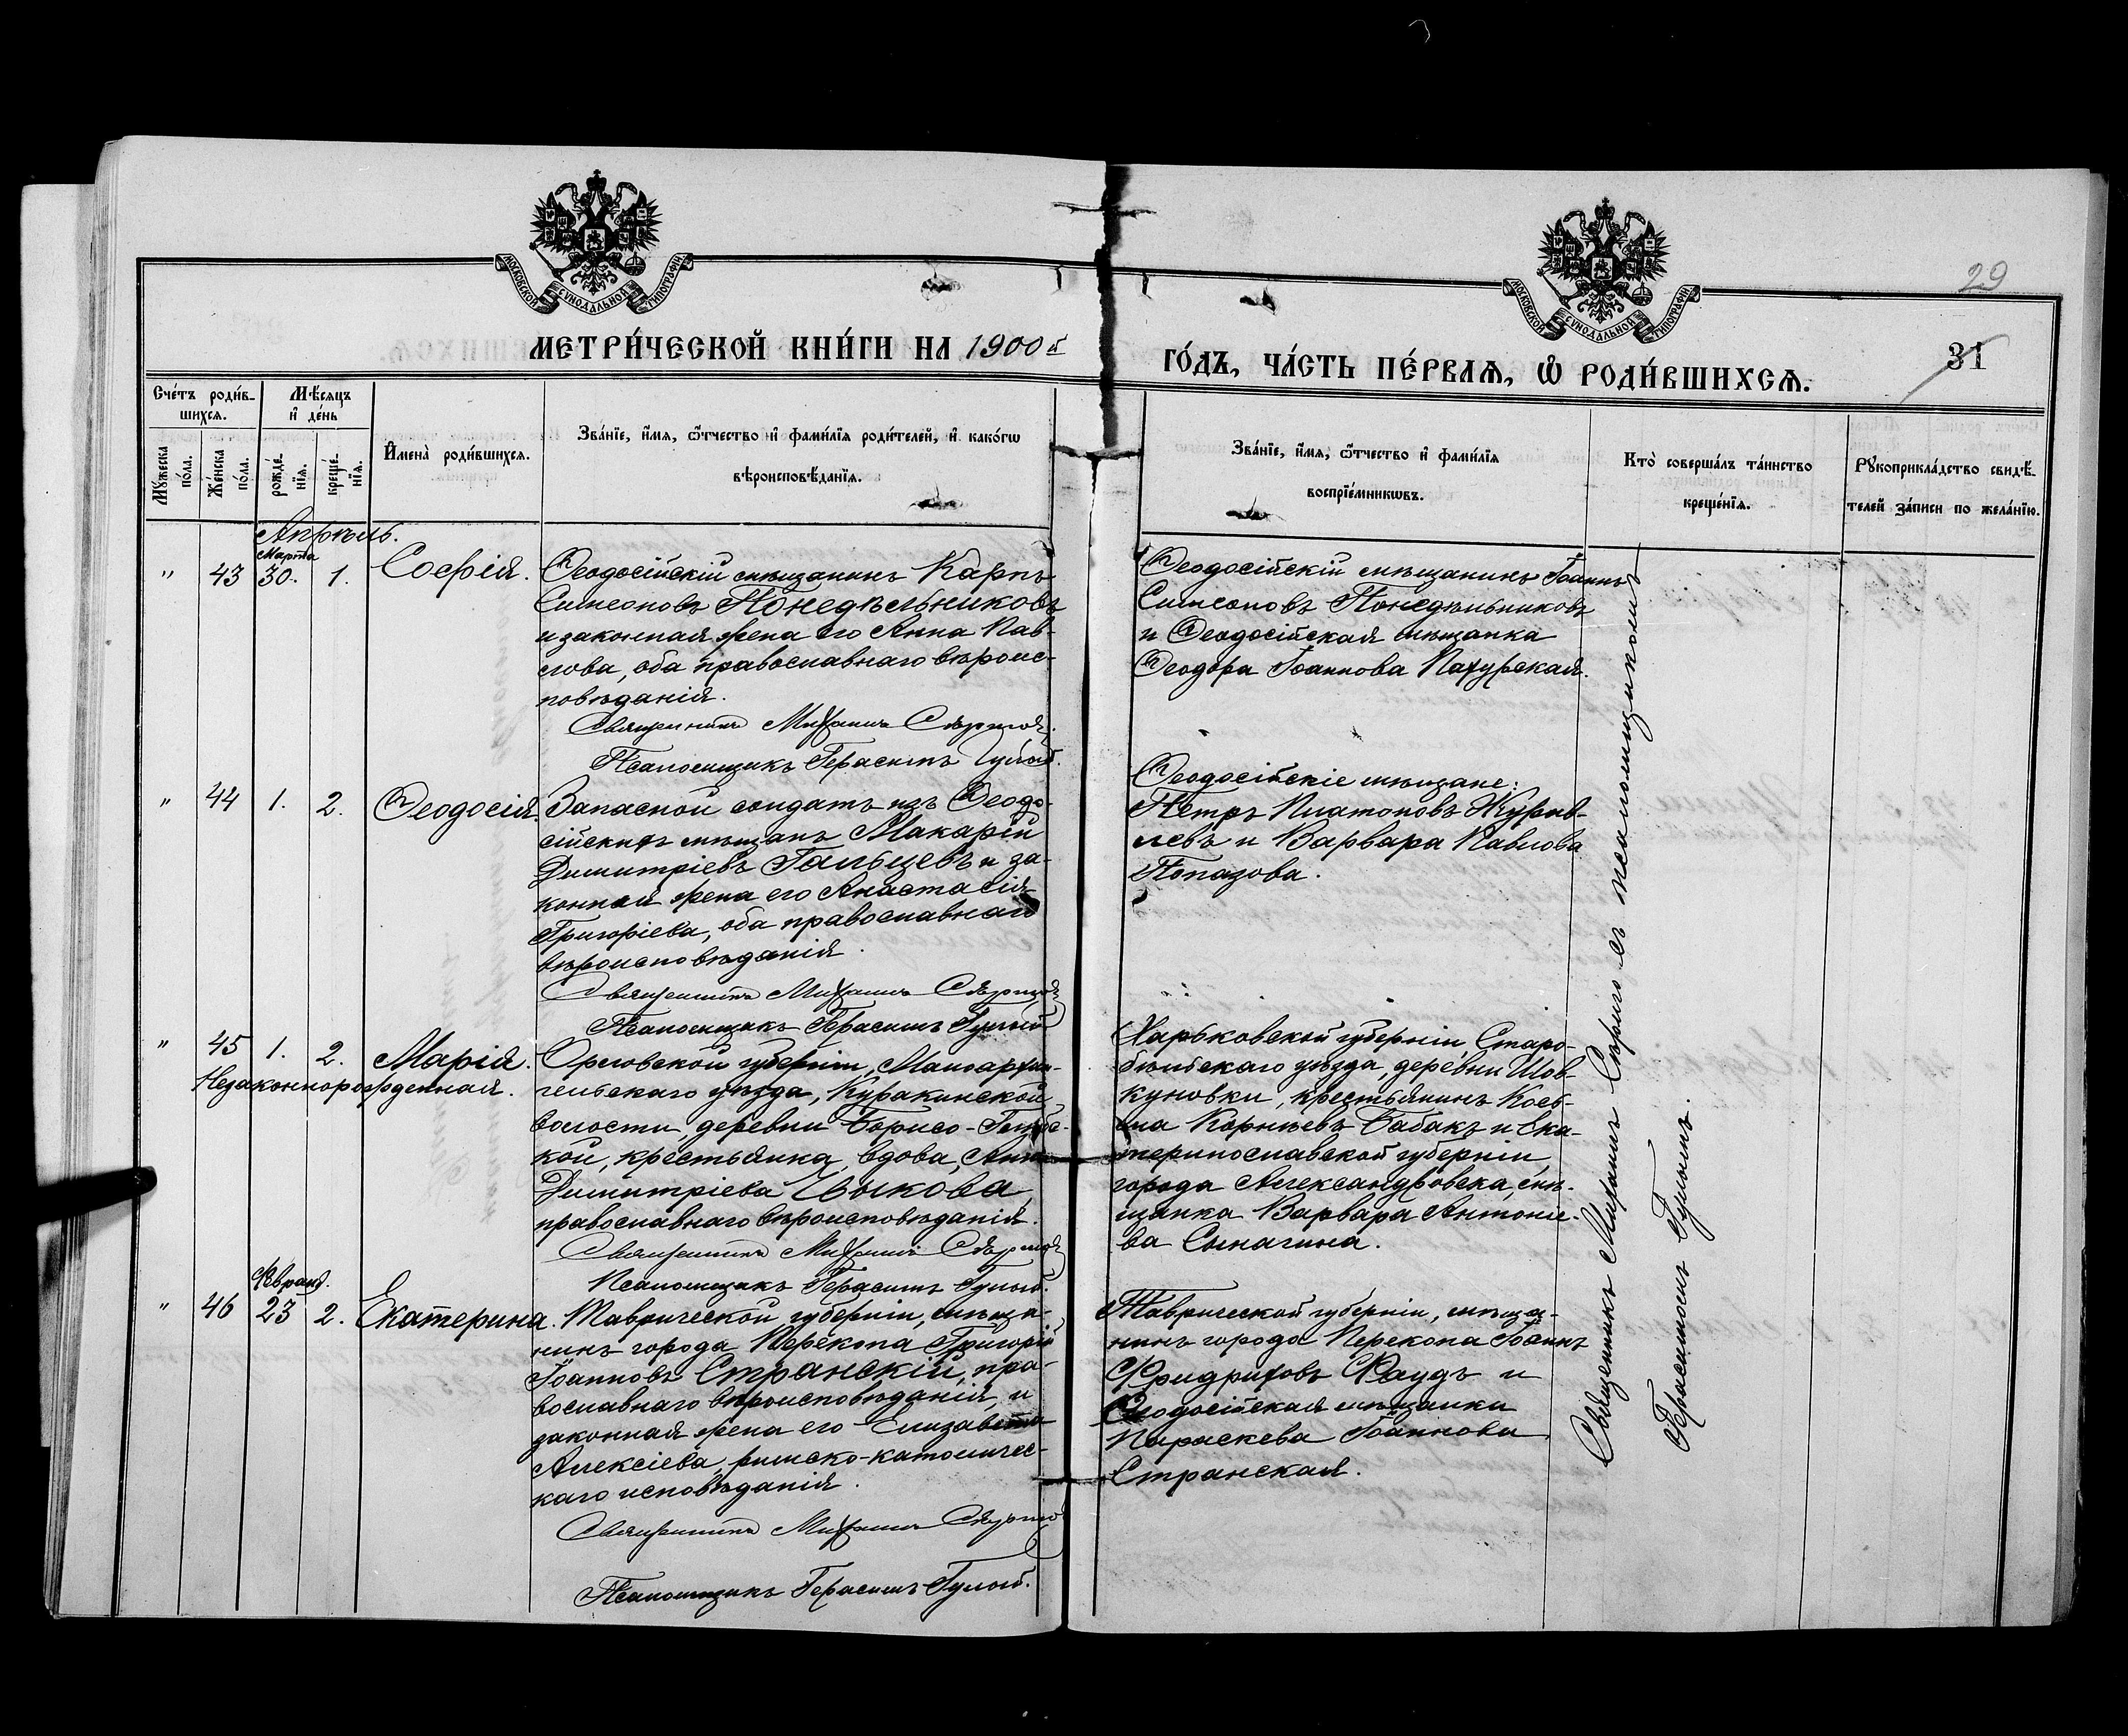 29
31
МОСКОВСКОЙ СѴНОДАЛЬНОЙ ТИПОГРАФІИ
МОСКОВСКОЙ СѴНОДАЛЬНОЙ ТИПОГРАФІИ
МЕТРИ́ЧЕСКОЙ КНИ́ГИ НА 1900й
ГО́ДЪ, ЧА́СТЬ ПЕ́РВАѦ, Ѡ РОДИ́ВШИХСѦ.
Сче́тъ роди́в-
шихсѧ.
Мѣ́сѧцъ
и҆ де́нь
Мꙋ́жеска
по́ла.
Же́нска
по́ла.
рожде́-
нїѧ.
креще́-
нїѧ.
И҆мена̀ роди́вшихсѧ.
Зва́нїе, и҆́мѧ, ѻ҆́тчество и҆ фами́лїѧ роди́телей, и҆ како́гѡ
вѣроисповѣ́данїѧ.
Зва́нїе, и҆́мѧ, ѻ҆́тчество и҆ фами́лїѧ
воспрїе́мникѡвъ.
Кто̀ соверша́лъ та́инство
креще́нїѧ.
Рꙋкоприкла́дство свидѣ́-
телей за́писи по жела́нїю.
Апрѣль.
Марта
" 43 30. 1. Софія.
Ѳеодосійскій мѣщанинъ Карпъ
Симеоновъ Понедѣльниковъ
и законная жена его Анна Пав-
лова, оба православнаго вѣроис-
повѣданія.
Священникъ Михаилъ
Псаломщикъ Герасимъ Гулый.
Ѳеодосійскій мѣщанинъ Іоаннъ
Симеоновъ Понедѣльниковъ
и Ѳеодосійская мѣщанка
Ѳеодора Іоаннова
" 44 1. 2. Ѳеодосія.
Запасной солдатъ изъ Ѳеодо-
сійскихъ мѣщанъ Макарій
Димитріевъ Гальцевъ и за-
конная жена его Анастасія
Григоріева, оба православнаго
вѣроисповѣданія.
Священникъ Михаилъ
Псаломщикъ Герасимъ Гулый
Ѳеодосійскіе мѣщане:
Петръ Платоновъ Журав-
левъ и Варвара Павлова
Попазова.
" 45 1. 2. Марія.
Незаконнорожденная.
Орловской губерніи, Малоархан-
гельскаго уѣзда, Куракинской
волости, деревни Борисо-
кой, крестьянка, вдова, Анна
Димитріева Цыкова,
православнаго вѣроисповѣданія.
Священникъ Михаилъ
Псаломщикъ Герасимъ Гулый.
Харьковской губерніи, Старо-
бѣльскаго уѣзда, деревни Шов-
куновки, крестьянинъ Козь-
ма Корнѣевъ Бабакъ и Ека-
теринославской губерніи,
города Александровска, мѣ-
щанка Варвара Антоніе-
ва Сыпачина.
Февраля.
" 46 23 2. Екатерина.
Таврической губерніи, мѣща-
нинъ города Перекопа Григорій
Іоанновъ Странскій, пра-
вославнаго вѣроисповѣданія, и
законная жена его Елизавета
Алексіева, римско-католичес-
каго исповѣданія.
Священникъ Михаилъ
Псаломщикъ Герасимъ Гулый.
Таврической губерніи, мѣща-
нинъ города Перекопа Іоаннъ
Фридриховъ Фаудъ и
Ѳеодосійская мѣщанка
Параскева Іоаннова
Странская.
Священникъ Михаилъ съ псаломщикомъ
Герасимомъ Гулымъ.